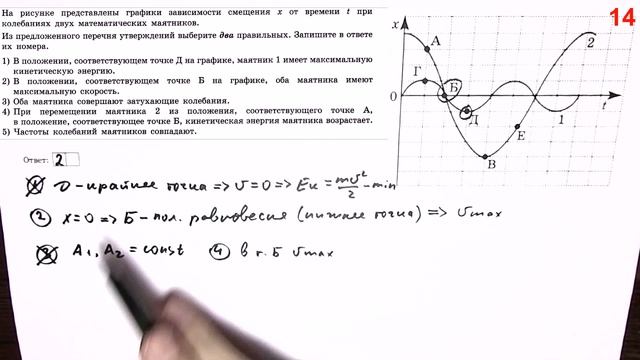 14
На рисунке представлены графики зависимости смещения x от времени t при
колебаниях двух математических маятников.
Из предложенного перечня утверждений выберите два правильных. Запишите в ответе
их номера.
1) В положении, соответствующем точке Д на графике, маятник 1 имеет максимальную
кинетическую энергию.
2) В положении, соответствующем точке Б на графике, оба маятника имеют
максимальную скорость.
3) Оба маятника совершают затухающие колебания.
4) При перемещении маятника 2 из положения, соответствующего точке А,
в положение, соответствующее точке Б, кинетическая энергия маятника возрастает.
5) Частоты колебаний маятников совпадают.
x
А
2
Г
Б
0
Д
1
t
Е
В
Ответ: 2
1 Д - крайнее точка => v = 0 => Eк = mv²/2 - min
2 x=0 => Б - пол. равновесия (нижнее точка) => v max
3 A₁, A₂ = const 4 в т. Б v max